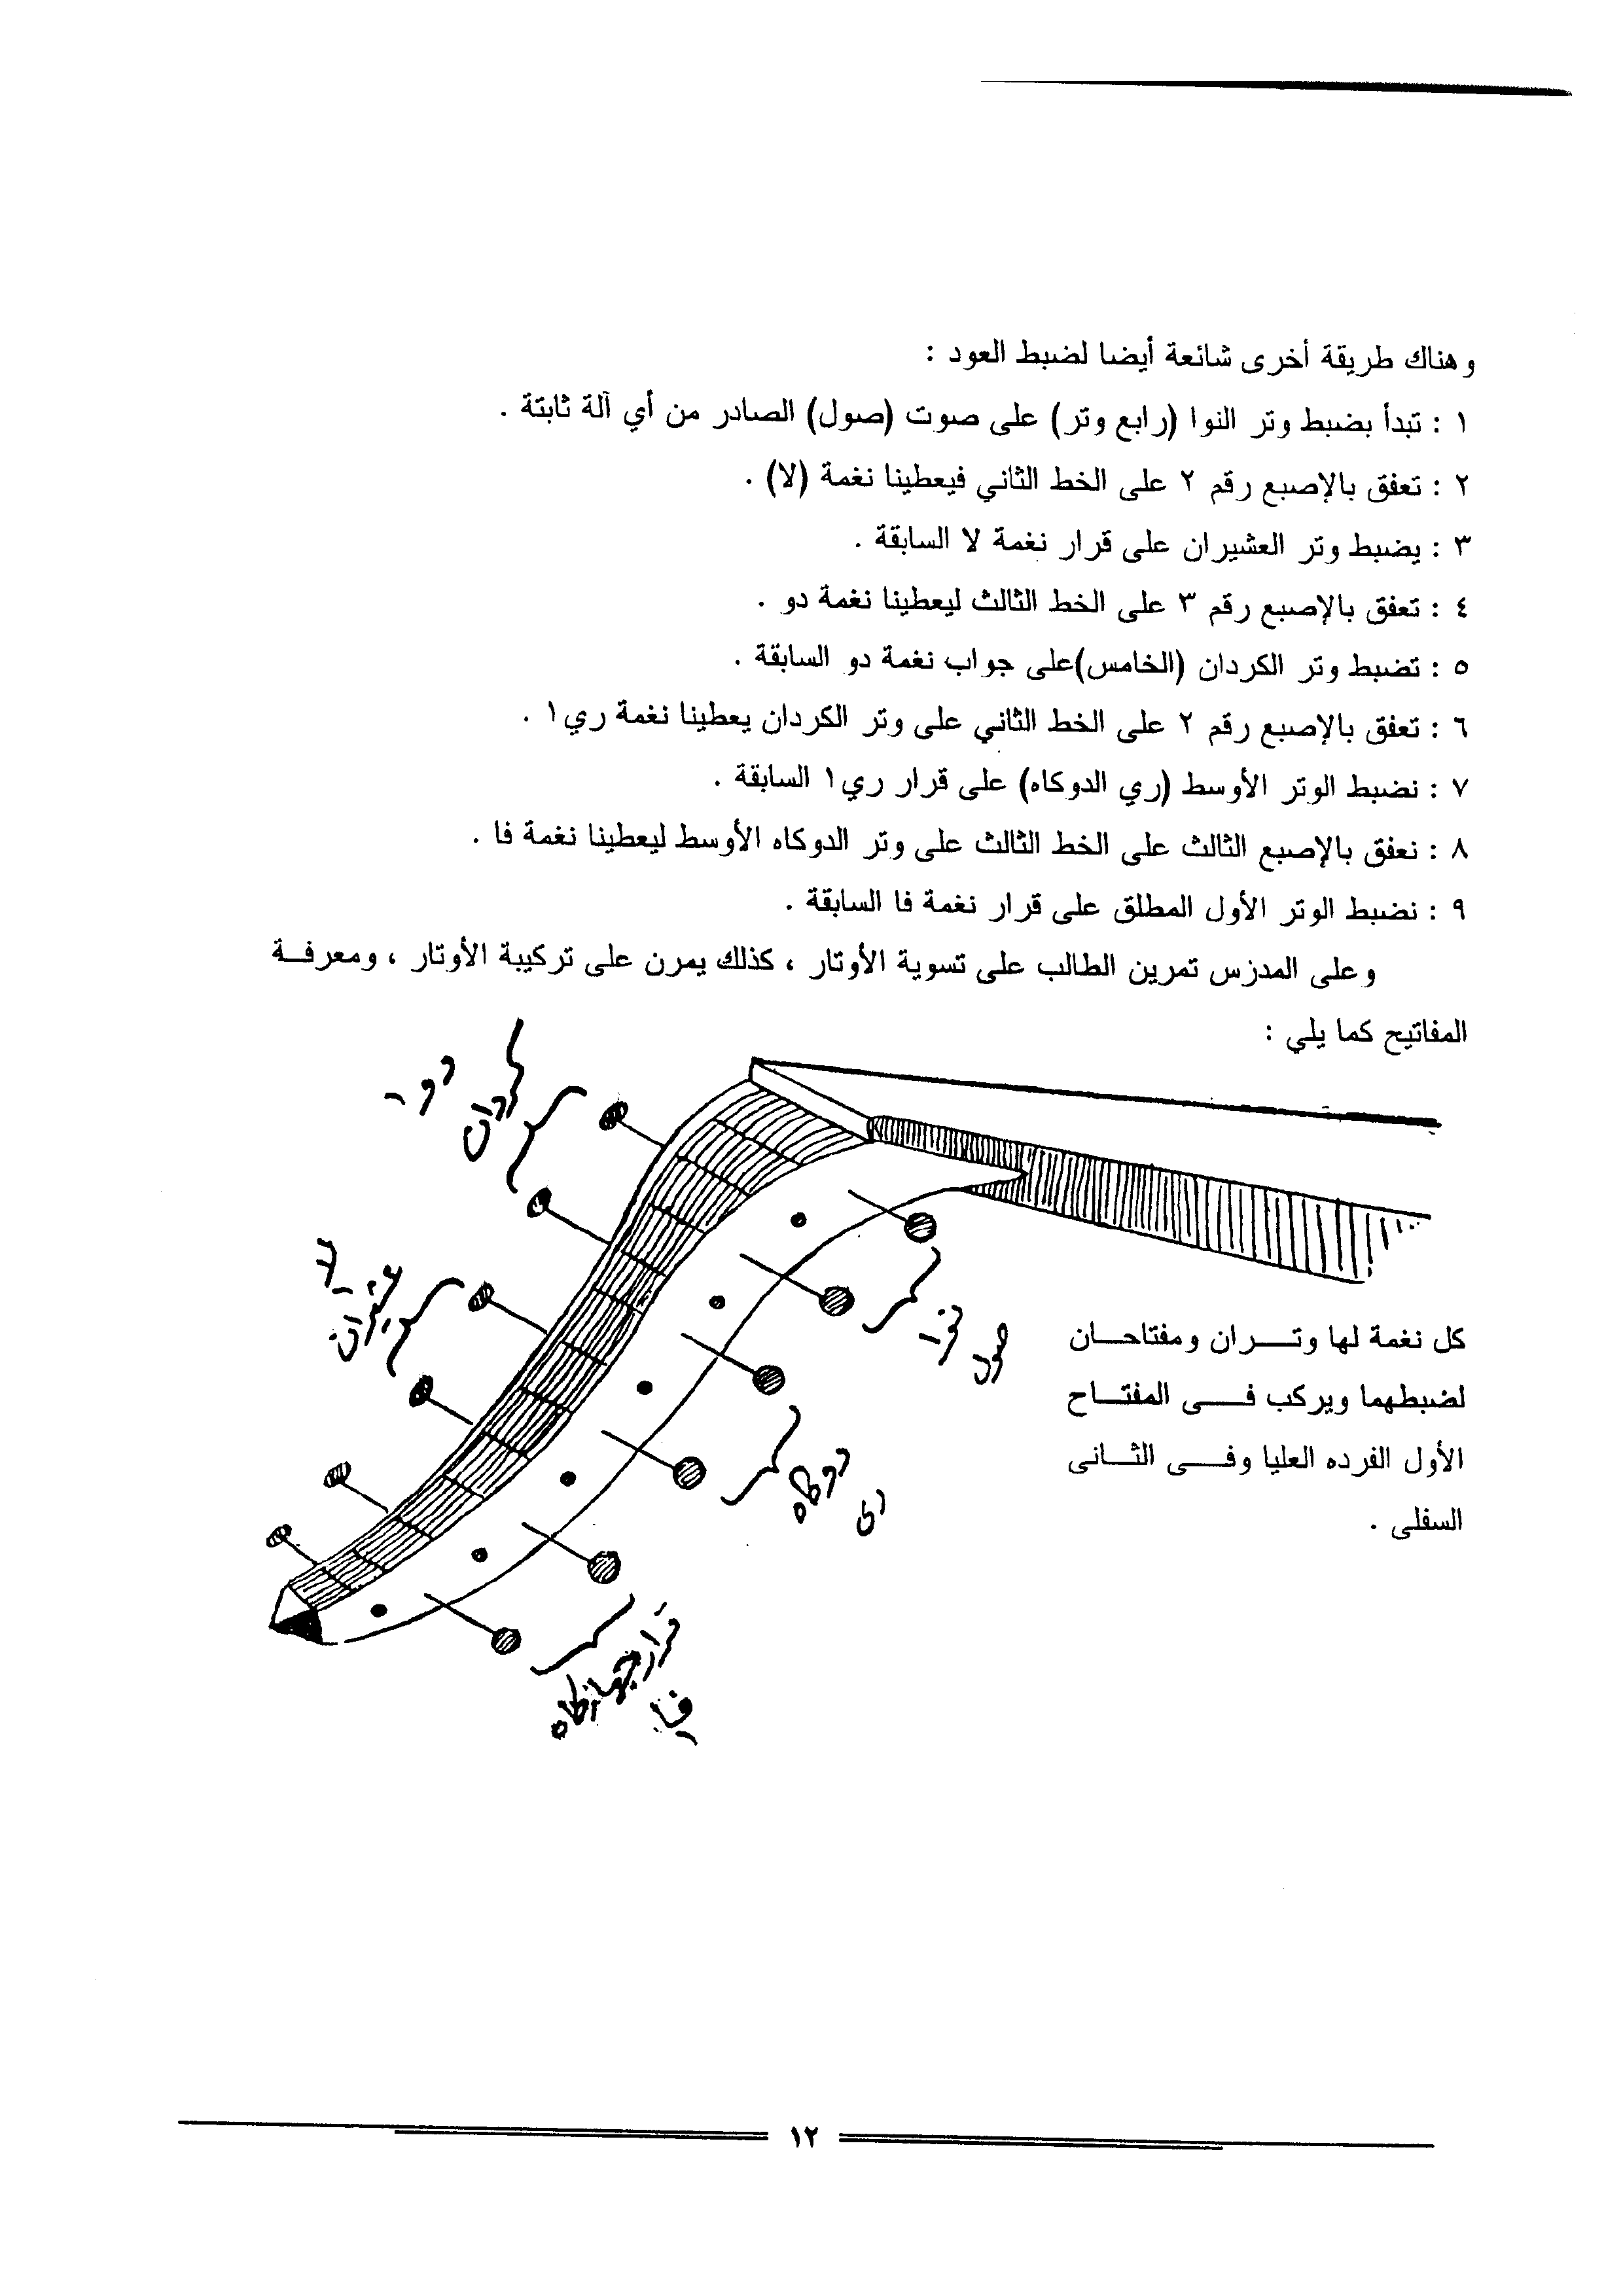 وهناك طريقة أخرى شائعة أيضا لضبط العود :
١ : تبدأ بضبط وتر النوا (رابع وتر) على صوت (صول) الصادر من أي آلة ثابتة .
٢ : تعفق بالإصبع رقم ٢ على الخط الثاني فيعطينا نغمة (لا) .
٣ : يضبط وتر العشيران على قرار نغمة لا السابقة .
٤ : تعفق بالإصبع رقم ٣ على الخط الثالث ليعطينا نغمة دو .
٥ : تضبط وتر الكردان (الخامس)على جواب نغمة دو السابقة .
٦ : تعفق بالإصبع رقم ٢ على الخط الثاني على وتر الكردان يعطينا نغمة ري١ .
٧ : نضبط الوتر الأوسط (ري الدوكاه) على قرار ري١ السابقة .
٨ : نعفق بالإصبع الثالث على الخط الثالث على وتر الدوكاه الأوسط ليعطينا نغمة فا .
٩ : نضبط الوتر الأول المطلق على قرار نغمة فا السابقة .
وعلى المدرس تمرين الطالب على تسوية الأوتار ، كذلك يمرن على تركيبة الأوتار ، ومعرفــة
المفاتيح كما يلي :
كردان
دو -
عشيران
لا -
نوا
صول
دوكاه
رى
قرار جهاركاه
فا
كل نغمة لها وتـــران ومفتاحـــان
لضبطهما ويركب فـــى المفتـــاح
الأول الفرده العليا وفـــى الثـــانى
السفلى .
١٢